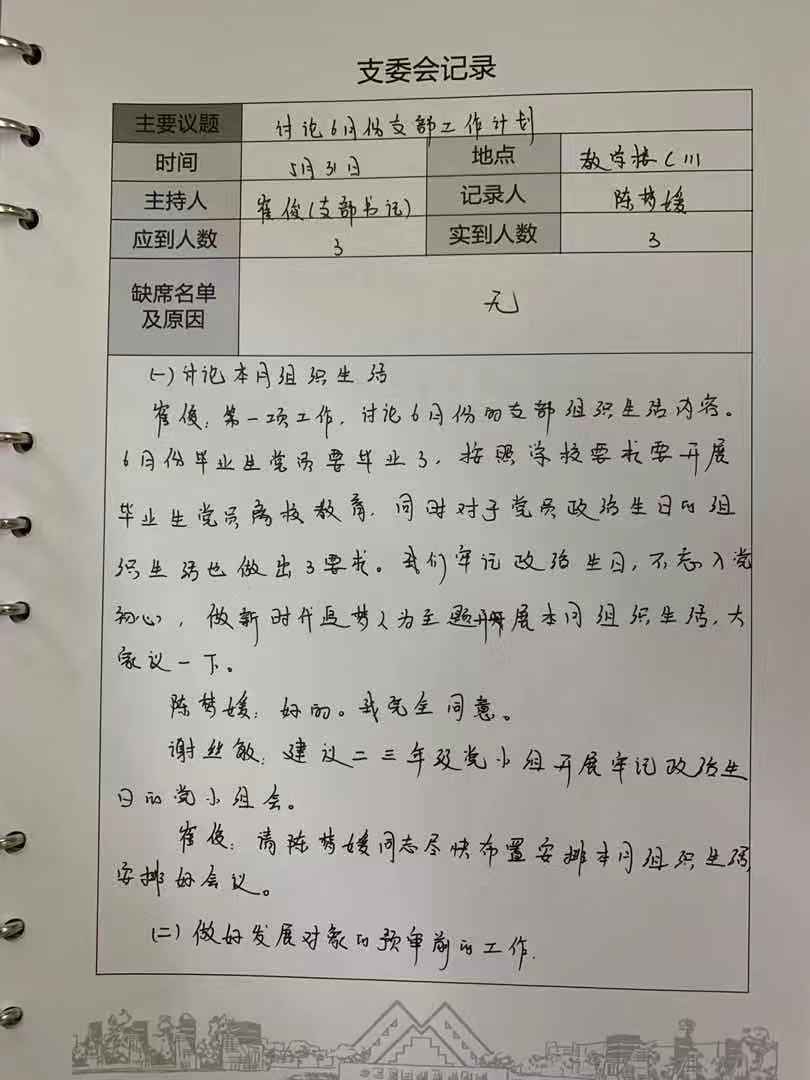 支委会记录
主要议题 讨论6月份支部工作计划
时间 5月31日 地点 教学楼C111
主持人 崔俊(支部书记) 记录人 陈梦媛
应到人数 3 实到人数 3
缺席名单
及原因 无
(一)讨论本月组织生活
崔俊:第一项工作,讨论6月份的支部组织生活内容。
6月份毕业生党员要毕业了,按照学校要求要开展
毕业生党员离校教育,同时对于党员政治生日的组
织生活也做出了要求。我们牢记政治生日,不忘入党
初心,做新时代追梦人为主题开展本月组织生活,大
家议一下。
陈梦媛:好的。我完全同意。
谢丝敏:建议二三年级党小组开展牢记政治生
日的党小组会。
崔俊:请陈梦媛同志尽快布置安排本月组织生活,
安排好会议。
(二)做好发展对象的预审前的工作.